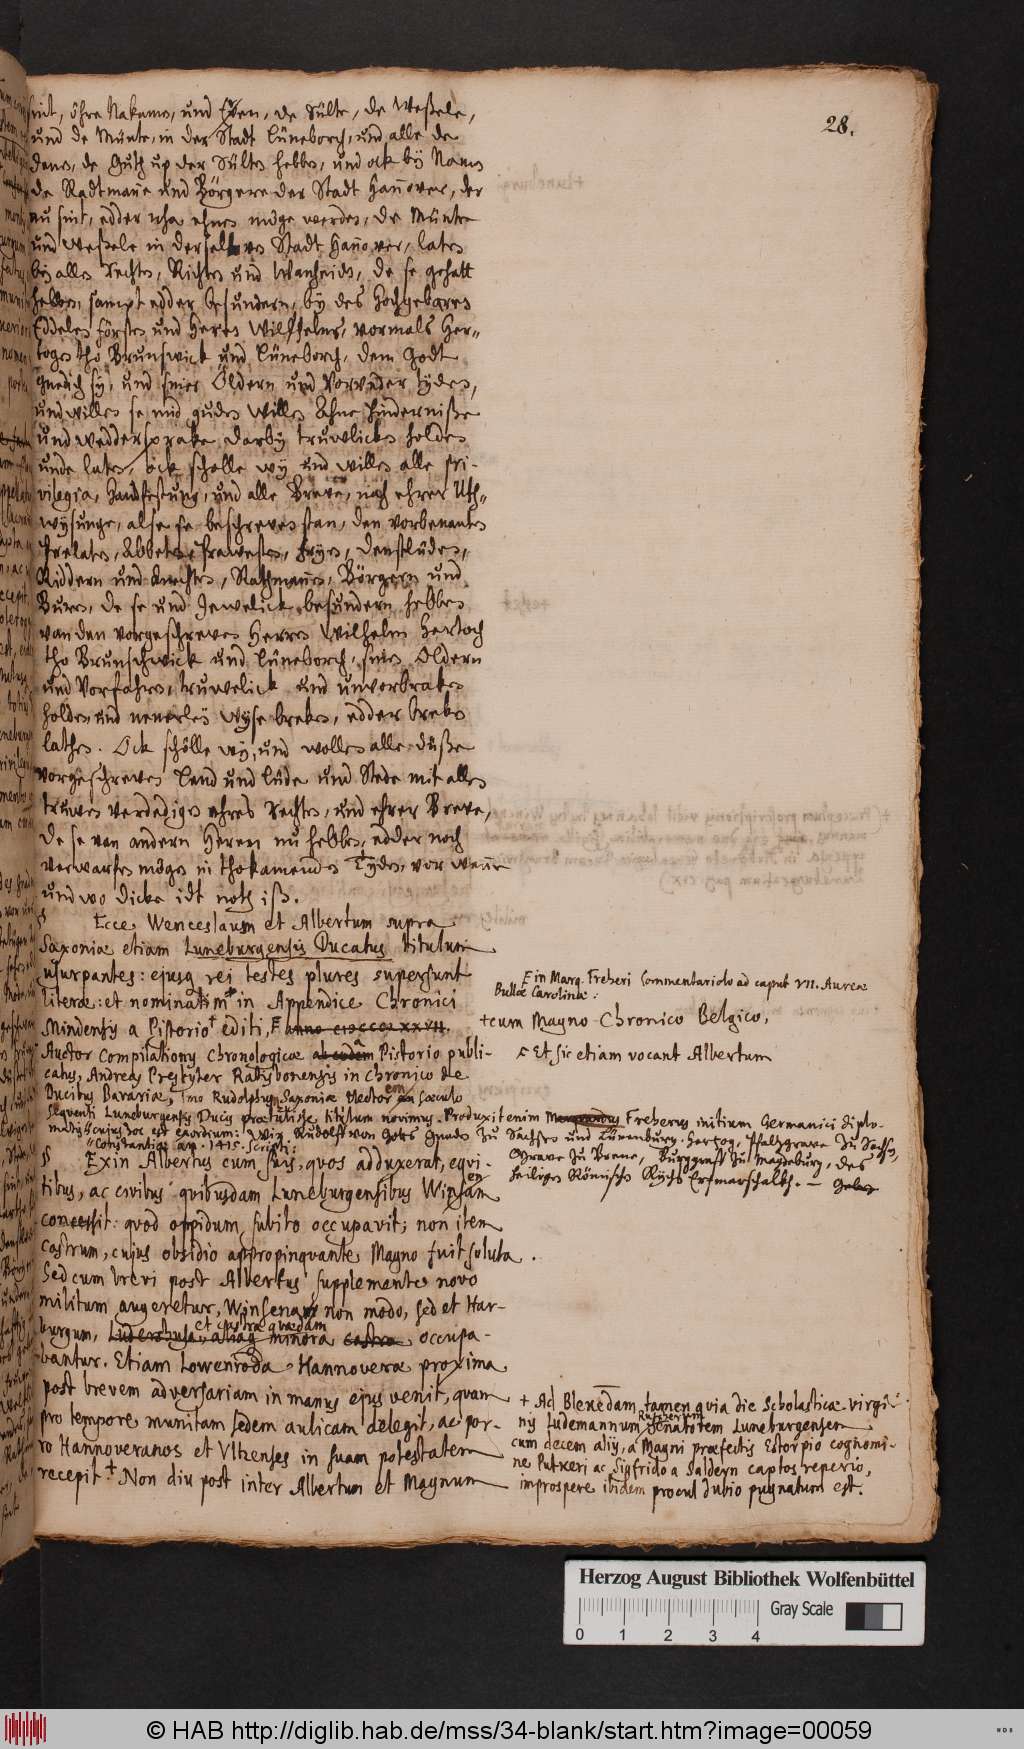 28.
sint, öhre Nakamen, und Erven, de Sülte, de Weßele,
und de Münte, in der Stadt Lüneborch, und alle de
denen, de Guth up der Sülten hebben, und ock by Namen
de Radtmanne und Börgere der Stadt Hannover, der
nu sint, edder na ehnen möge werden, de Münte
und Weßele in derselben Stadt Hannover, laten
by allen Rechten, Richten und Wanheiden, de se gehatt
hebben, sampt edder besundern, by des Hochgebaren
Eddelen Försten und Heren Wilhelms, vormals Her-
togen tho Brunswick und Lüneborch, dem Godt
gnedich sy, und siner Öldern und Vorvader tyden,
und willen se mid guden willen Ahne Hinderniße
und weddersprake darby truwlicken holden
unde laten, ock scholle wy und willen alle pri-
vilegia, Handfestung, und alle Breve, nach ehrer Uth-
wysunge, alse se beschreven stan, den vorbenanten
Prelaten, Abbeten, Prawesten, Fryen, Denstlüden,
Riddern und Knechten, Rathmannen, Börgern und
Buren, de se und Jewelick besundern hebben
van den vorgeschreven Herren Wilhelm Hertoch
tho Brunschwick und Lüneborch, sinen Oldern
und Vorfahren, truwelick und unvorbraken
holden, und nenerley wyse breken, edder breken
lathen. Ock schölle wy, und wollen alle düße
vorgeschreven Land und Lüde und Stede mit allen
truwen verdedigen ehres Rechten, und ehrer Breve,
de se van andern Heren nu hebben, edder noch
verwarfen mögen in thokamenden Tyden, vor wenne
und wo dicke idt noth iß.
Ecce Wenceslaum et Albertum supra
Saxoniæ etiam Luneburgensis Ducatus titulum
usurpantes: ejusq rei testes plures supersunt
literæ: et nominatim in Appendice Chronici
Mindensis a Pistorio + editi, F anno
Auctor Compilationis Chronologicæ ab eodem Pistorio publi-
catus, Andreas Presbyter Ratisbonensis in Chronico de
Ducibus Bavariæ, Imo Rudolphus Saxoniæ Elector eôn sæculo
sequenti Luneburgensis Ducis prætulisse titulum novimus. Produxit enim Marquardus Freherus initium Germanici diplo-
matis cujus hoc est exordium: Wir Rudolff von Gotts Gnaden zu Sachsen und Lünenburg Hertzog, Pfaltzgrave zu Sachsen,
Grave zu Brene, Burggraff zu Magdeburg, des
heiligen Römischen Rychs Ertzmarschalkh. —
Constantiæ an. 1415. Scripti:
Exin Albertus cum suis, quos adduxerat, eqvi-
tibus, ac civibus quibusdam Luneburgensibus Winsam
concessit: quod oppidum subito occupavit; non item
castrum, cujus obsidio appropinquante Magno fuit soluta.
Sed cum brevi post Albertus supplemento novo
militum augeretur, Winsenam non modo, sed et Har-
burgum, Luderhusa, aliaq minora castra occupa-
et castra quædam
bantur. Etiam Lowenroda Hannoveræ proxima
post brevem adversariam in manus ejus venit, quam
pro tempore munitam sedem aulicam delegit, ac por-
ro Hannoveranos et Vltzenses in suam potestatem
recepit. + Non diu post inter Albertum et Magnum
F in Marq. Freheri Commentariolo ad caput VII. Aureæ
Bullæ Carolinæ:
+ cum Magno Chronico Belgico,
F Et sic etiam vocant Albertum
+ Ad Blekedam tamen quia die Scholasticæ virgi-
nis Ludemannum Rutzerum Senatorem Luneburgensem
cum decem aliis, a Magni præfectis Estorpio cognomi-
ne Putkeri ac Sigfrido a Saldern captos reperio,
improspere ibidem procul dubio pugnatum est.
Herzog August Bibliothek Wolfenbüttel
Gray Scale
0 1 2 3 4
© HAB http://diglib.hab.de/mss/34-blank/start.htm?image=00059